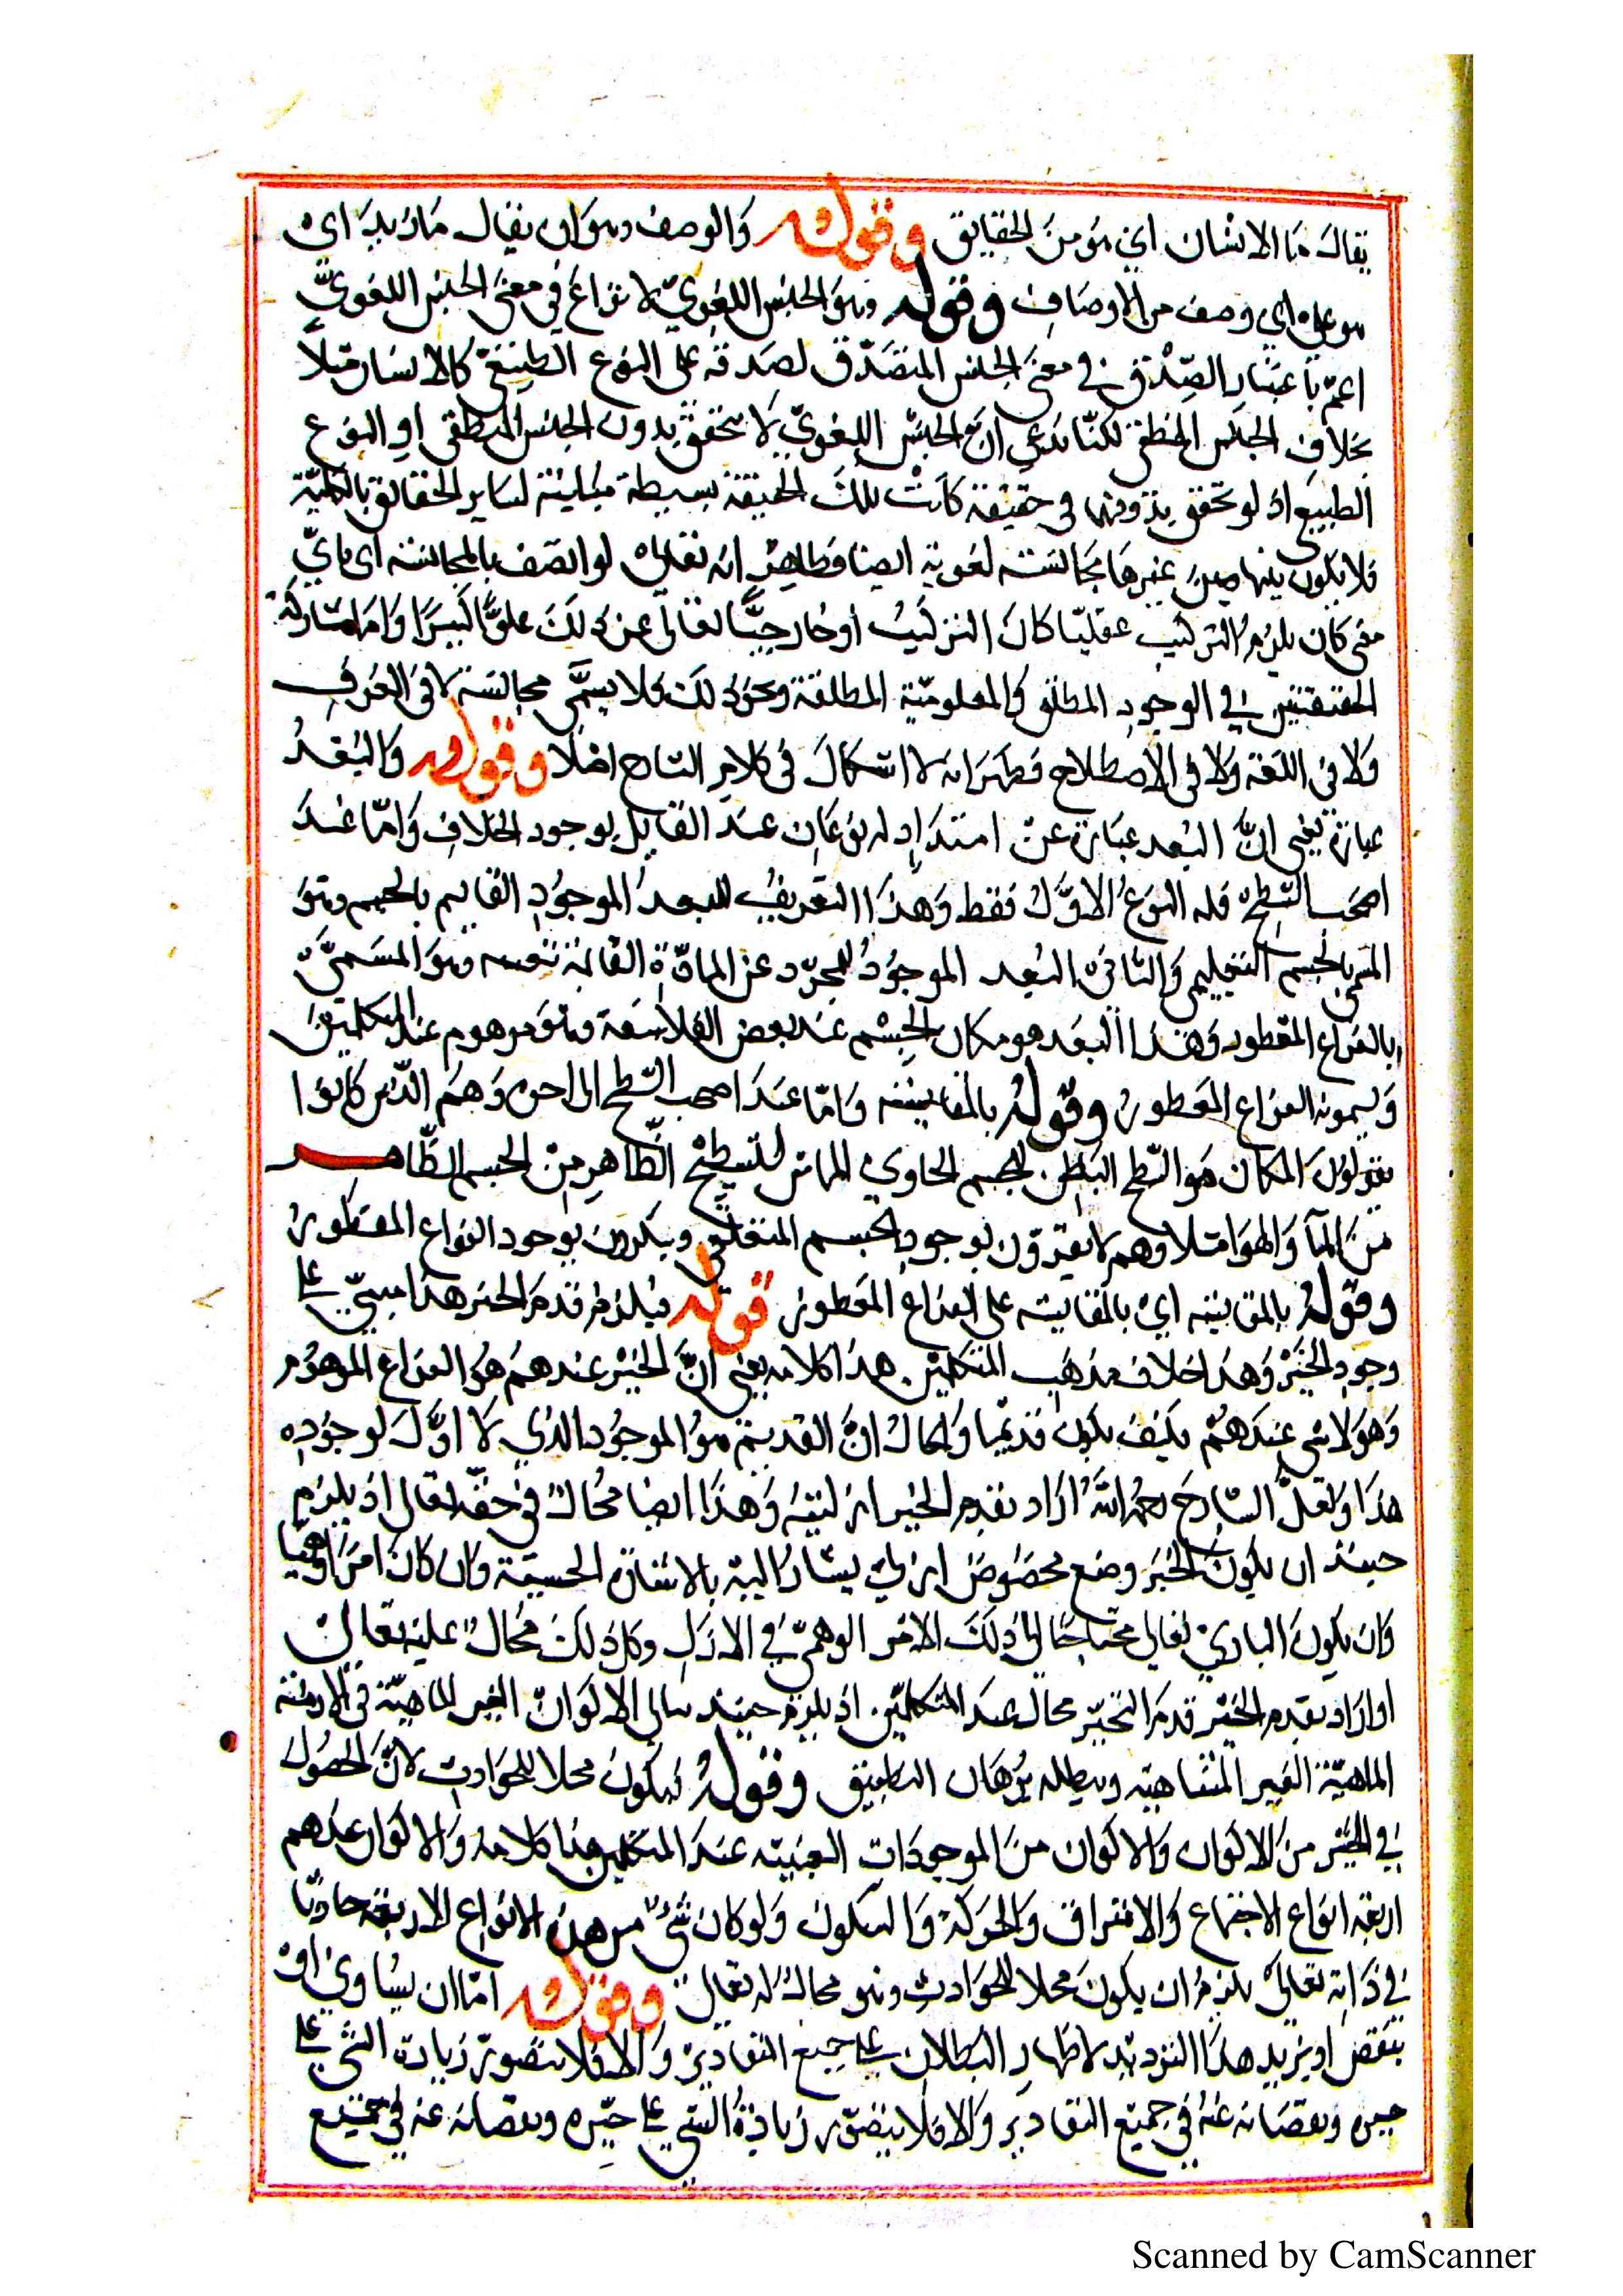 يقال ما الانسان اي هو من الحقايق وقوله والوصف وهو ان يقال ما زيد اي
هو على اي وصف من الاوصاف وقوله وهو الجنس اللغوي لا نزاع في معنى الجنس اللغوي
اعم باعتبار الصدق في معنى الجنس لصدقه على النوع كالانسان مثلا
بخلاف الجنس المنطقي لكنا ندعي ان الجنس اللغوي لا يتحقق بدون الجنس المنطقي او النوع
الطبيعي اذ لو تحقق بدونهما في حقيقة كانت تلك الحقيقة بسيطة مباينة لساير الحقائق بالكلية
فلا يكون بينها وبين غيرها مجانسة لغوية ايضا فظاهر انه تعالى لو اتصف بالمجانسة اي باي
معنى كان يلزم التركيب عقليا كان التركيب او خارجيا تعالى عن ذلك علوا كبيرا واما مشاركة
الحقيقتين في الوجود المطلق والمعلومية المطلقة ونحو ذلك فلا يسمى مجانسة لا في العرف
ولا في اللغة ولا في الاصطلاح فظهر انه لا اشكال في كلام الشارح اصلا وقوله والبعد
عبارة يعني ان البعد عبارة عن امتداد له نوعان عند القايل بوجود الخلاف واما عند
اصحب السطح فله النوع الاول فقط وهذا التعريف للبعد الموجود القايم بالجسم وهو
المسمى بالجسم التعليمي والثاني البعد الموجود المجرد عن المادة القائمة بنفسه وهو المسمى
بالفراغ المفطور وهذا البعد هو مكان الجسم عند بعض الفلاسفة وهو موهوم عند المتكلمين
ويسمونه الفراغ المفطور وقوله بالمقايسة واما عند اصحب السطح الى اخره وهم الذين كانوا
يقولون المكان هو السطح الباطن للجسم الحاوي المماس للسطح الظاهر من الجسم الظاهر
من الماء والهوا مثلا وهم لا يقرون بوجود الجسم وينكرون بوجود الفراغ المفطور
وقوله بالمقايسة اي بالمقايسة على الفراغ المفطور قوله فيلزم قدم الحيز هذا مبني على
وجود الحيز وهذا خلاف مذهب المتكلمين هذا كلامه يعني ان الحيز عندهم هو الفراغ الموهوم
وهو لا شي عندهم فكيف يكون قديما والحال ان القديم هو الموجود الذي لا اول لوجوده
هذا ولعل الشارح رحمه الله اراد بقدم الحيز ازليته وهذا ايضا محال في حقه تعالى اذ يلزم
حينئذ ان يكون للحيز وضع مخصوص ازلي يشار اليه بالاشارة الحسية وان كان امرا وهميا
وان يكون الباري تعالى محتاجا الى ذلك الامر الوهمي في الازل وكل ذلك محال عليه تعالى
او اراد بقدم الحيز قدم التحيز محال عند المتكلمين اذ يلزم حينئذ الاكوان الغير الماهية في الازمنة
الماهية الغير المتناهية ويبطله برهان التطبيق وقوله فيكون محلا للحوادث لان الحصول
في الحيز من الاكوان والاكوان من الموجودات العينية عند المتكلمين هذا كلامه والاكوان عندهم
اربعة انواع الاجتماع والافتراق والحركة والسكون ولو كان شئ من هذه الانواع الاربعة حادثا
في ذاته تعالى يلزم ان يكون محلا للحوادث وهو محال له تعالى وقوله اما ان يساوي او
ينقص او يزيد هذا الترديد لاظهار البطلان على جميع التقادير والا فلا يتصور زيادة الشي على
حيزه ونقصانه عنه في جميع التقادير والا فلا يتصور زيادة الشي على حيزه ونقصانه عنه في جميع
Scanned by CamScanner